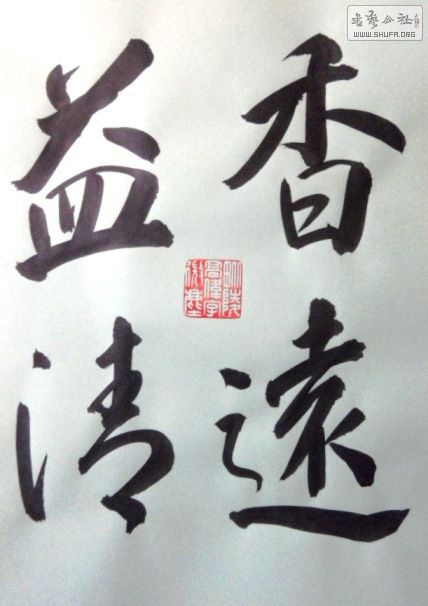 香遠
益清
書藝公社
WWW.SHUFA.ORG